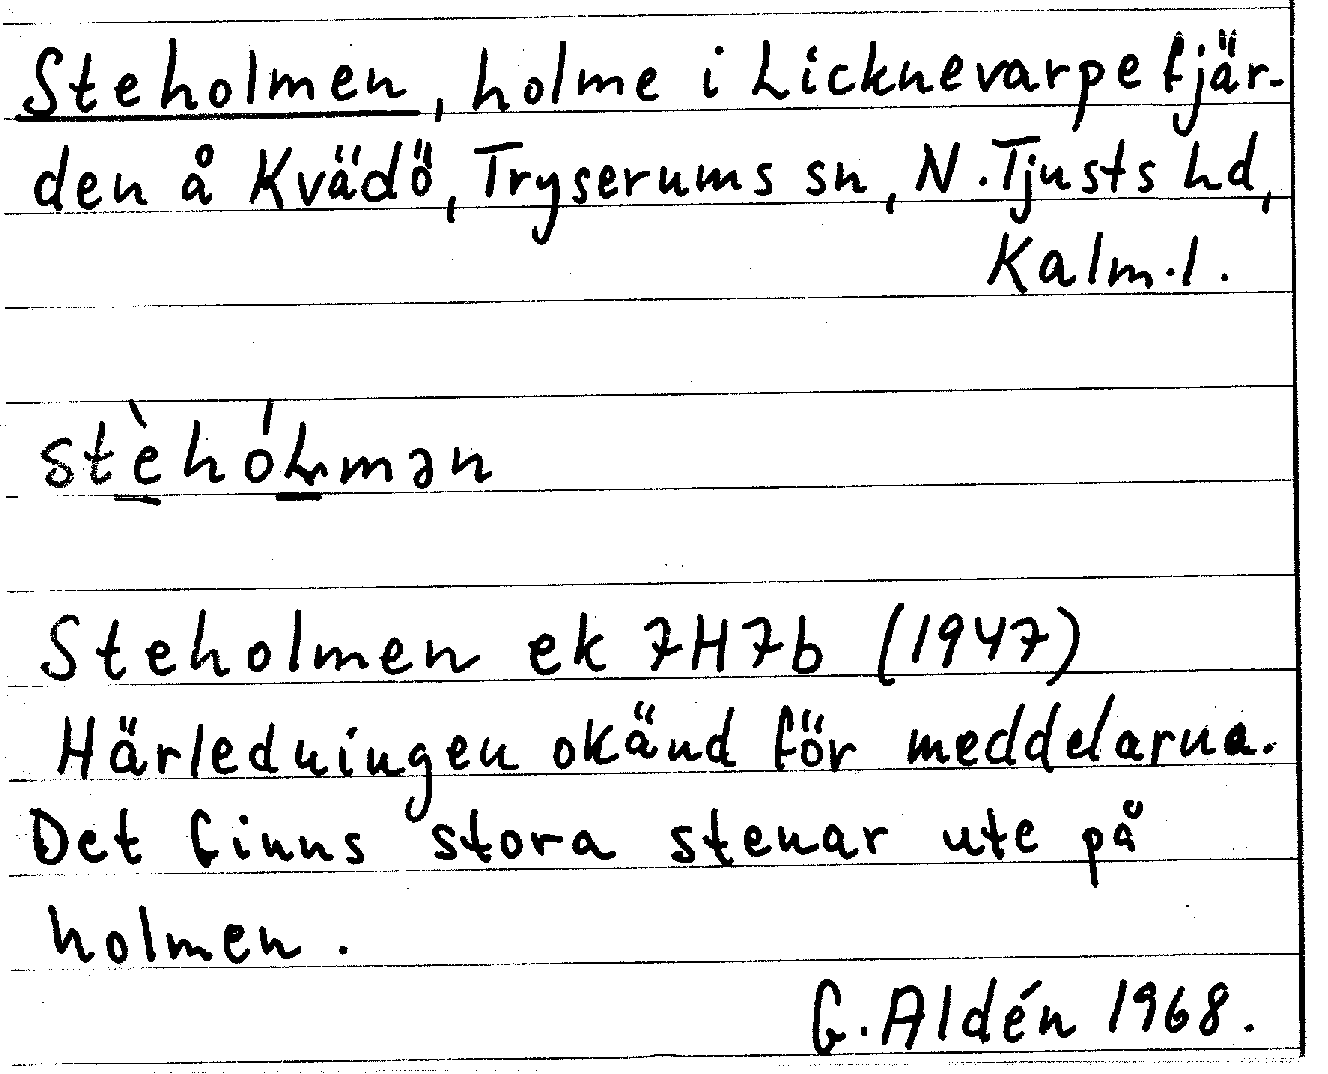 Steholmen, holme i Licknevarpefjär-
den å Kvädö, Tryserums sn, N. Tjusts hd,
Kalm.l.
stèhóʟmən
Steholmen ek 7H7b (1947)
Härledningen okänd för meddelarna.
Det finns stora stenar ute på
holmen.
G. Aldén 1968.